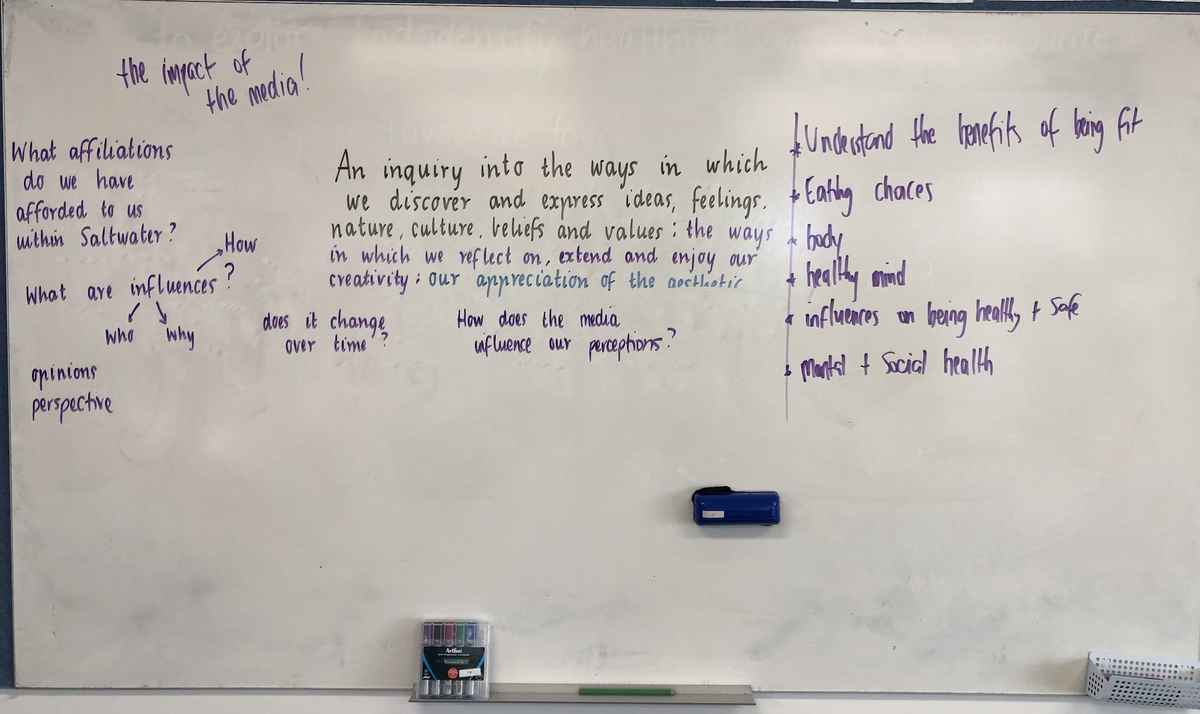 the impact of
the media!
What affiliations
do we have
afforded to us
within Saltwater?
How
What are influences?
who why
opinions
perspective
An inquiry into the ways in which
we discover and express ideas, feelings,
nature, culture, beliefs and values; the ways
in which we reflect on, extend and enjoy our
creativity; our appreciation of the aesthetic
does it change
over time?
How does the media
influence our perceptions?
* Understand the benefits of being fit
* Eating choices
* body
* healthy mind
* influences on being healthy + safe
* Mental + Social health
Artline